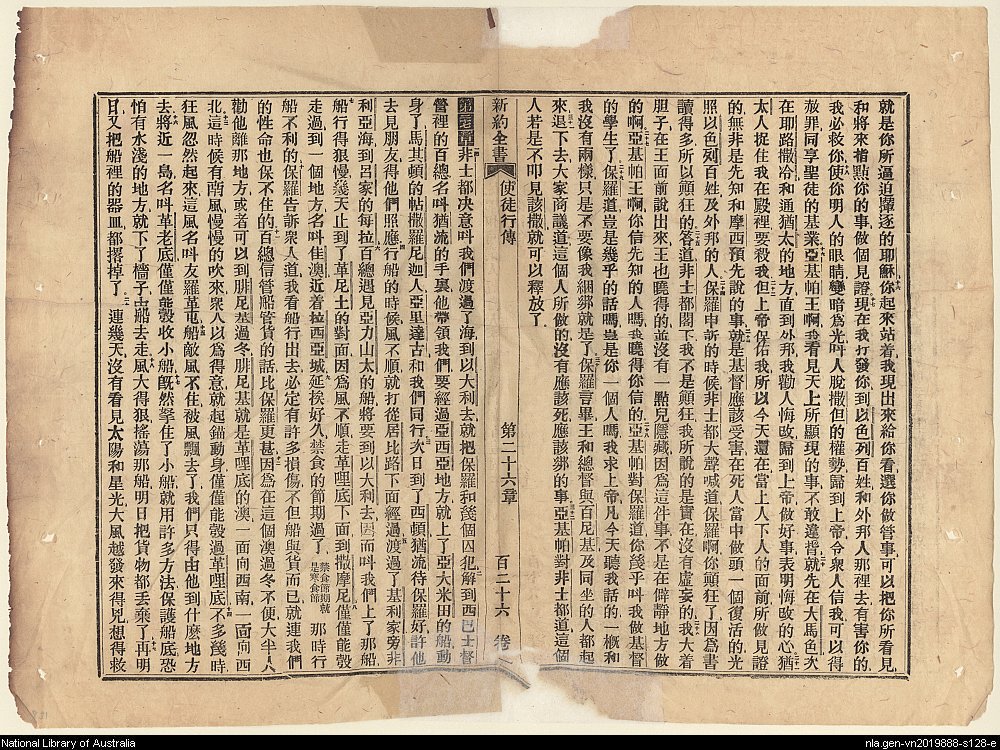 就是你所逼迫攆逐的耶穌你起來站着我現出來給你看選你做管事可以把你所看見
和將來指點你的事做個見證現在我打發你到以色列百姓和外邦人那裡去有害你的
我必救你使你明人的眼睛變暗爲光叫人脫撒但的權勢歸到上帝令衆人信我可以得
赦罪同享聖徒的基業亞基帕王啊我看見天上所顯現的事不敢違背就先在大馬色次
在耶路撒冷和通猶太的地方直到外邦我勸人悔改歸到上帝做好事表明悔改的心猶
太人捉住我在殿裡要殺我但上帝保佑我所以今天還在當上人下人的面前所做見證
的無非是先知和摩西預先說的事就是基督應該受害在死人當中做頭一個復活的光
照以色列百姓及外邦的人保羅申訴的時候非士都大聲喊道保羅啊你顛狂了因爲書
讀得多所以顛狂的答道非士都閣下我不是顛狂我所說的是實在沒有虛妄的我大着
胆子在王面前說出來王也曉得的並沒有一點兒隱藏因爲這件事不是在僻靜地方做
的啊亞基帕王啊你信先知的人嗎我曉得你信的亞基帕對保羅道你幾乎叫我做基督
的學生了保羅道豈是幾乎的話嗎豈是你一個人嗎我求上帝凡今天聽我話的一槪和
我沒有兩樣只是不要像我綑綁就是了保羅言畢王和總督與百尼基及同坐的人都起
來退下去大家商議道這個人所做的沒有應該死應該綁的事亞基帕對非士都道這個
人若是不叩見該撒就可以釋放了
新約全書 使徒行傳 第二十六章 百二十六 卷
非士都決意叫我們渡過了海到以大利去就把保羅和幾個囚犯解到西巴士督
營裡的百總名叫猶流的手裏他帶領我們要經過亞西亞地方就上了亞大米田的船動
身了馬其頓的帖撒羅尼迦人亞里達古和我們同行次日到了西頓猶流待保羅好許他
去見朋友得他們照應行船的時候風不順就打從居比路下面經過渡過了基利家旁非
利亞海到呂家的每拉百總遇見亞力山太的船將要到以大利去因而叫我們上了那船
船行得狠慢幾天止到了革尼土的對面因爲風不順走革哩底下面到撒摩尼僅僅能彀
走過到一個地方名叫佳澳近着拉西亞城延挨好久禁食的節期過了禁食節期就是寒食節那時行
船不利的保羅告訴衆人道我看船行出去必定有許多損傷不但船與貨而已就連我們
的性命也保不住的百總信管船管貨的話比保羅更甚因爲在這個澳過冬不便大半人
勸他離那地方或者可以到腓尼基過冬腓尼基就是革哩底的澳一面向西南一面向西
北這時候有南風慢慢的吹來衆人以爲得意就起錨動身僅僅能彀過革哩底不多幾時
狂風忽然起來這風名叫友羅革屯船敵風不住被風飄去了我們只得由他到什麽地方
去將近一島名叫革老底僅僅能彀收小船旣然擎住了小船就用許多方法保護船底恐
怕有水淺的地方就下了檣子占船去走風大得狠搖蕩那船明日把貨物都丢棄了再明
日又把船裡的器皿都撂掉了連幾天沒有看見太陽和星光大風越發來得兇想得救
National Library of Australia
nla.gen-vn2019888-s128-e